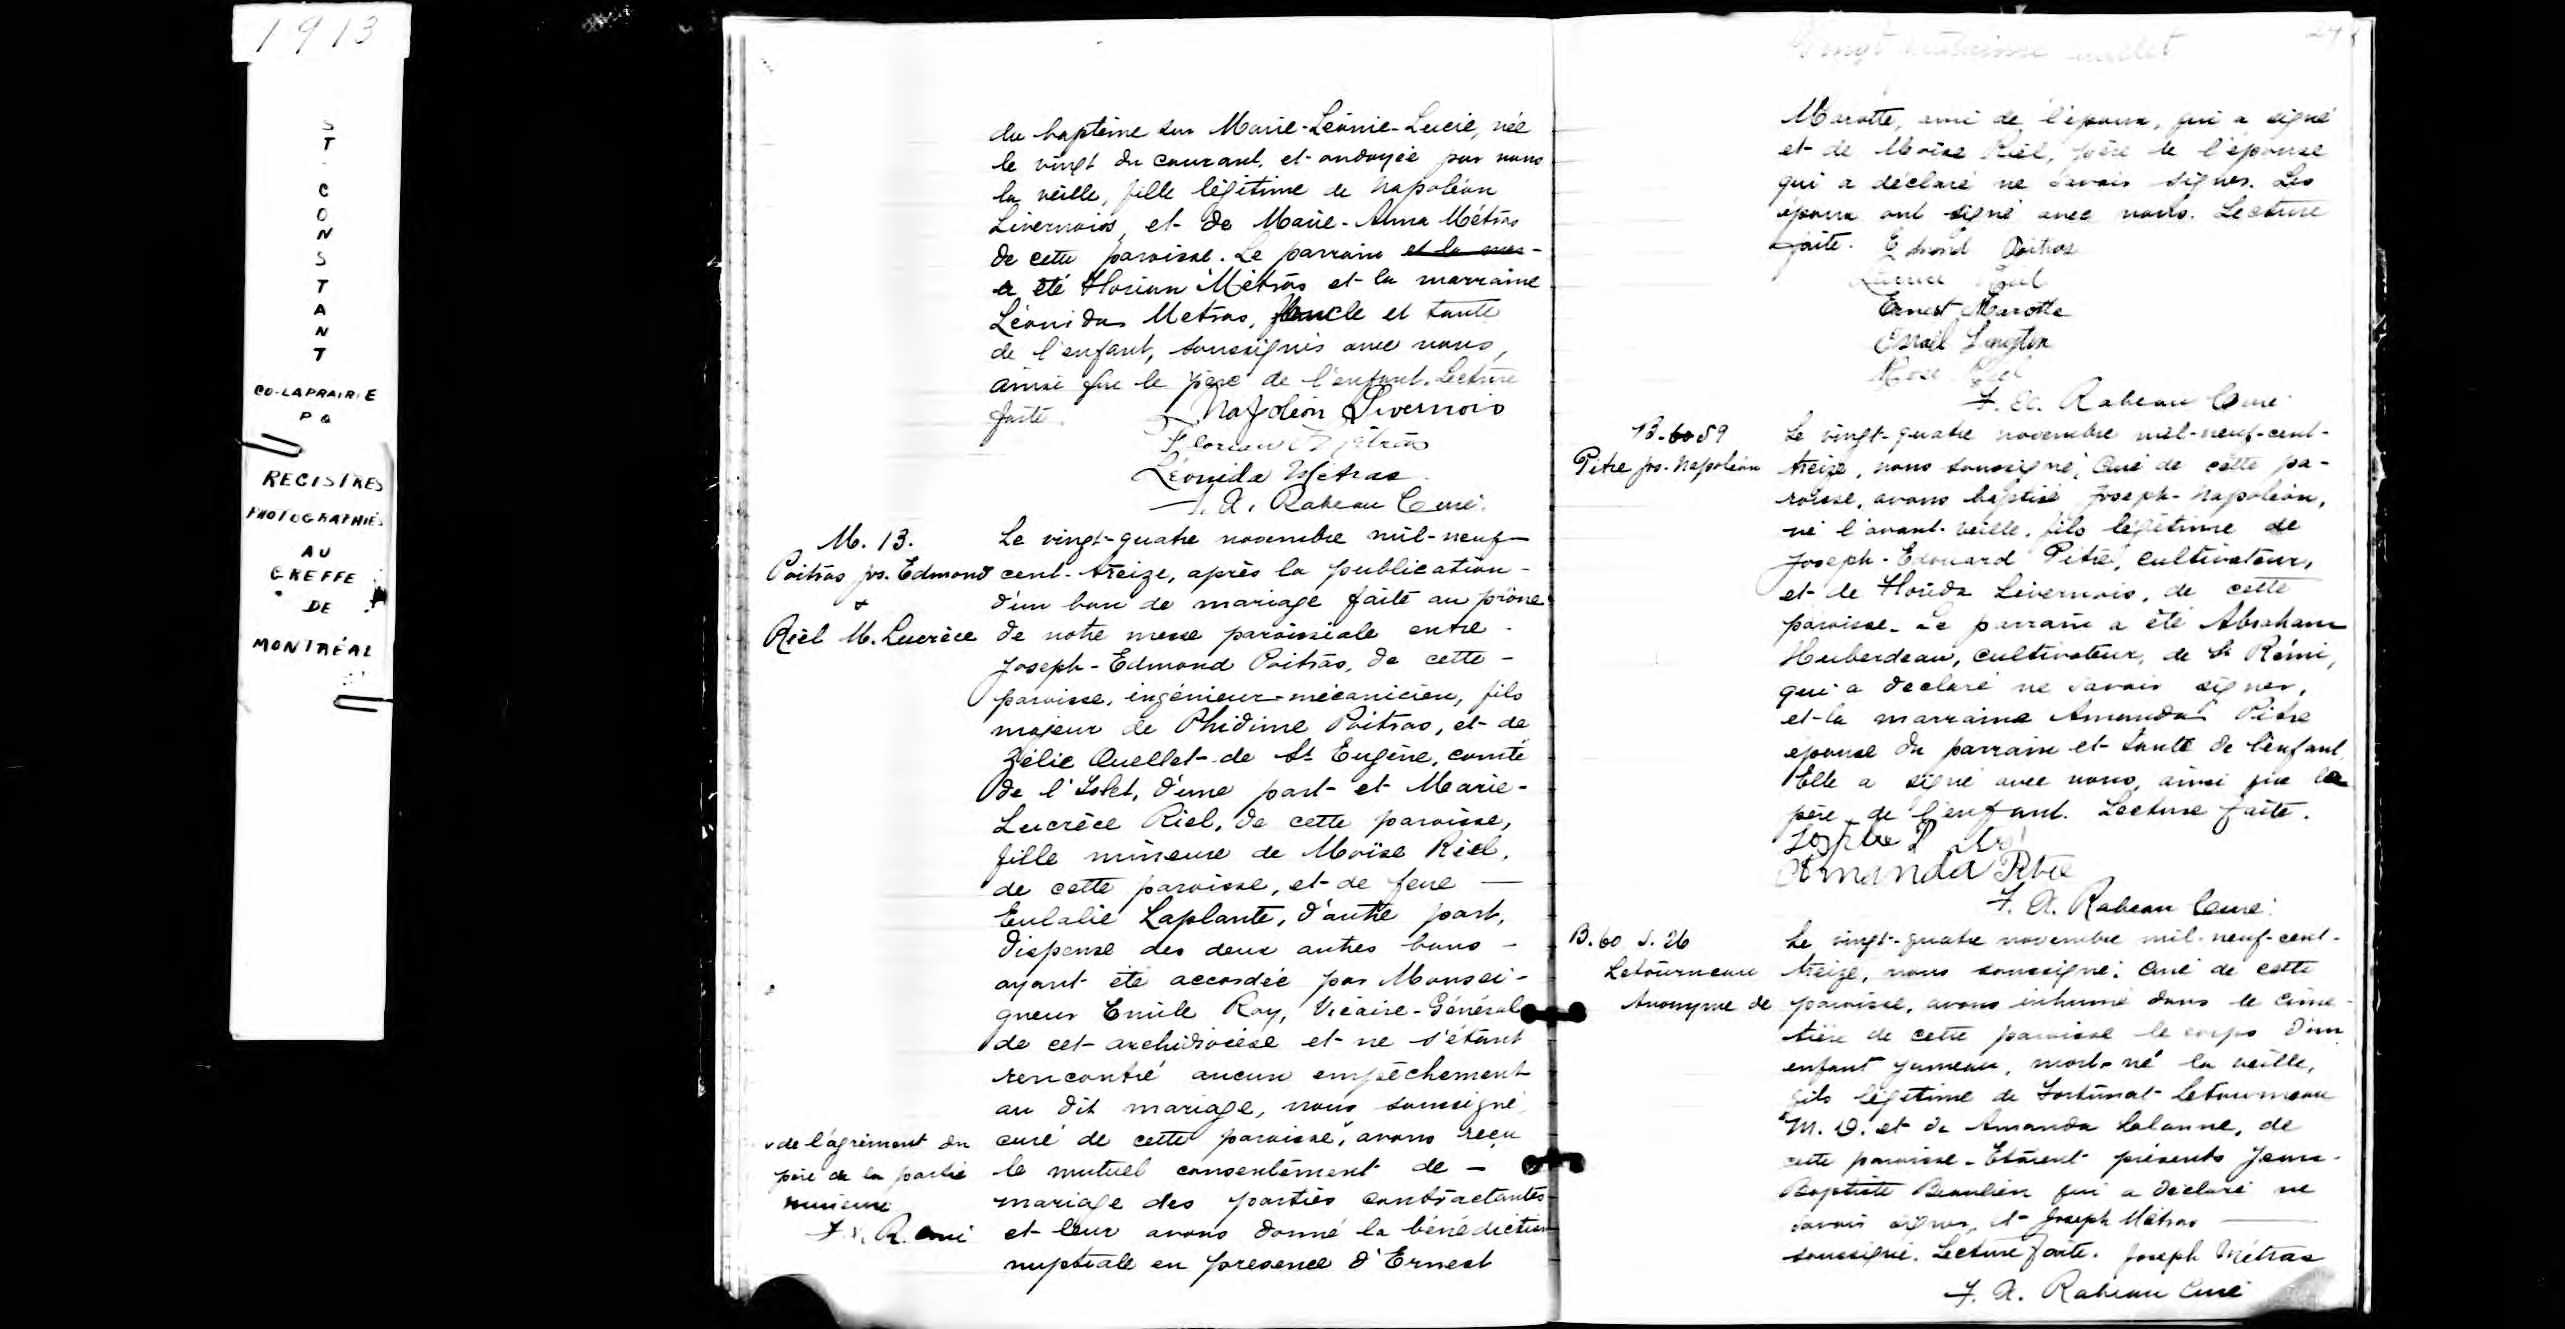 1913
ST CONSTANT
CO-LAPRAIRIE
P Q
REGISTRES
PHOTOGRAPHIÉS
AU
GREFFE
DE
MONTRÉAL
du baptême sur Marie-Léonie-Lucie, née
le vingt du courant, et ondoyée par nous
la veille, fille légitime de Napoléon
Livernois, et de Marie-Anna Métras
de cette paroisse. Le parrain et la mar-
a été Florian Métras et la marraine
Léonidas Metras, oncle et tante
de l'enfant, soussignés avec nous,
ainsi que le père de l'enfant. Lecture
faite. Napoléon Livernois
Florian Métras
Léonida Métras
F. A. Rabeau Curé.
M. 13.
Poitras js. Edmond
&
Riel M. Lucrèce
Le vingt-quatre novembre mil-neuf-
cent-treize, après la publication-
d'un ban de mariage faite au prône
de notre messe paroissiale entre-
Joseph-Edmond Poitras, de cette-
paroisse, ingénieur-mécanicien, fils
majeur de Phidime Poitras, et de
Zélie Ouellet-de St Eugène, comté
de l'Islet, d'une part-et Marie-
Lucrèce Riel, de cette paroisse,
fille mineure de Moïse Riel,
de cette paroisse, et-de feue —
Eulalie Laplante, d'autre part,
dispense des deux autres bans-
ayant été accordée par Monsei-
gneur Emile Roy, Vicaire-Général
de cet archidiocèse et ne s'étant
rencontré aucun empêchement
au dit mariage, nous soussigné
curé de cette paroisse, avons reçu
le mutuel consentement de -
mariage des parties contractantes
et leur avons donné la bénédiction
nuptiale en presence d'Ernest
v de l'agrément du
père de la partie
mineure
F. X. R. curé
Marotte, ami de l'époux, qui a signé
et de Moïse Riel, père de l'épouse
qui a déclaré ne savoir signer. Les
époux ont signé avec nous. Lecture
faite. Edmond Poitras
Lucrèce Riel
Ernest Marotte
F. A. Rabeau Curé
B. 60 59
Pitre js. Napoléon
Le vingt-quatre novembre mil-neuf-cent-
treize, nous soussigné, Curé de cette pa-
roisse, avons baptisé Joseph-Napoléon,
né l'avant-veille, fils légitime de
Joseph-Edouard Pitre, cultivateur,
et de Livernois, de cette
paroisse. Le parrain a été Abraham
Huberdeau, cultivateur, de St Rémi,
qui a declaré ne savoir signer,
et-la marraine Amanda Pitre
epouse du parrain et tante de l'enfant.
Elle a signé avec nous, ainsi que le
père de l'enfant. Lecture faite.
Amanda Pitre
F. A. Rabeau Curé.
B. 60 S. 26
Letourneau
Anonyme de
Le vingt-quatre novembre mil-neuf-cent-
treize, nous soussigné, Curé de cette
paroisse, avons inhumé dans le cime-
tière de cette paroisse le corps d'un
enfant jumeau, mort-né la veille,
fils légitime de Fortunat Letourneau
M. D. et de Amanda Lalanne, de
cette paroisse. Etaient présents Jean-
Baptiste Beaulieu qui a déclaré ne
savoir signer, et Joseph Métras —
soussigné. Lecture faite. Joseph Métras
F. A. Rabeau Curé